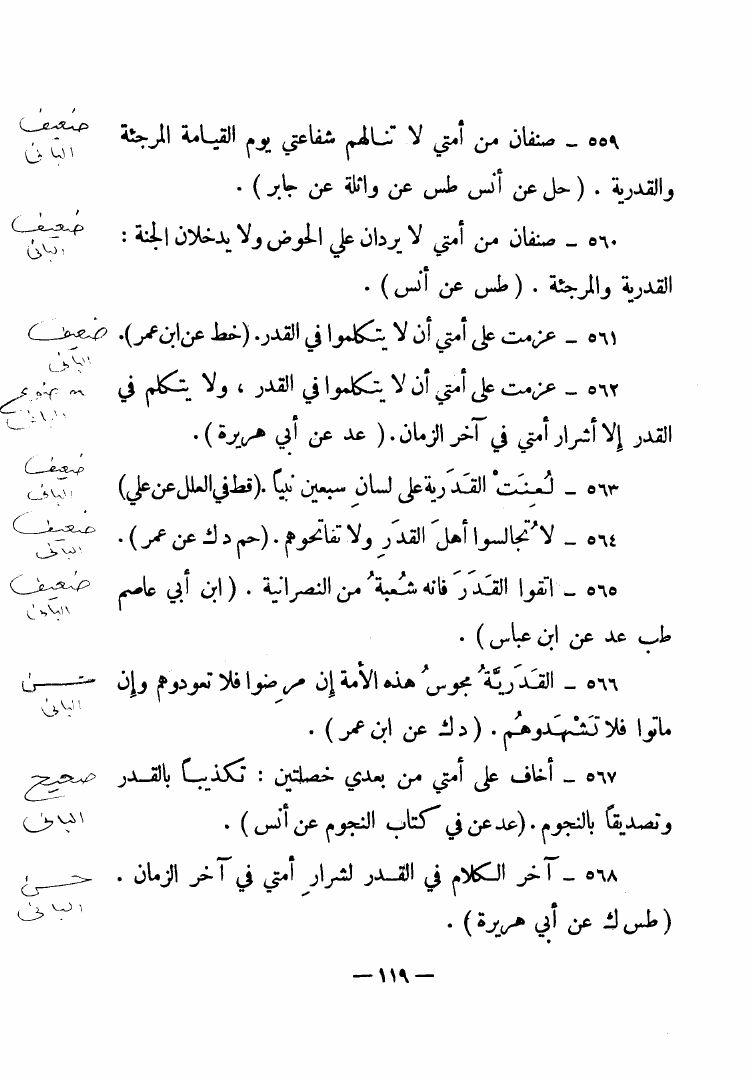 ٥٥٩ ـ صنفان من أمتي لا تنـالهم شفاعتي يوم القيـامة المرجئة
ضعيف
البانى
والقدرية . ( حل عن أنس طس عن واثلة عن جابر ) .
٥٦٠ ـ صنفان من أمتي لا يردان علي الحوض ولا يدخلان الجنة :
ضعيف
البانى
القدرية والمرجئة . ( طس عن أنس ) .
٥٦١ ـ عزمت على أمتي أن لا يتكلموا في القدر. (خط عن ابن عمر).
ضعيف
البانى
٥٦٢ ـ عزمت على أمتي أن لا يتكلموا في القدر ، ولا يتكلم في
موضوع
البانى
القدر إلا أشرار أمتي في آخر الزمان. ( عد عن أبي هريرة ) .
٥٦٣ ـ لُعِنَتْ القَدَرية على لسانِ سبعين نبياً .(قط في العلل عن علي)
ضعيف
البانى
٥٦٤ ـ لا تُجالسوا أهلَ القدَرِ ولا تفاتحوهم . (حم د ك عن عمر ) .
ضعيف
البانى
٥٦٥ ـ اتقوا القَدَرَ فانه شُعبةٌ من النصرانية . ( ابن أبي عاصم
ضعيف
البانى
طب عد عن ابن عباس ) .
٥٦٦ ـ القَدَريَّةُ مجوسُ هذه الأمة إن مرِضوا فلا تعودوهم وإن
حسن
البانى
ماتوا فلا تَشْهَدوهُم . ( د ك عن ابن عمر ) .
٥٦٧ ـ أخاف على أمتي من بعدي خصلتين : تكذيبـاً بالقـدر
صحيح
البانى
وتصديقاً بالنجوم . (عد عن في كتاب النجوم عن أنس ) .
٥٦٨ ـ آخر الـكلام في القـدر لشرارِ أمتي في آخر الزمان .
حسن
البانى
( طس ك عن أبي هريرة ) .
— ١١٩ —